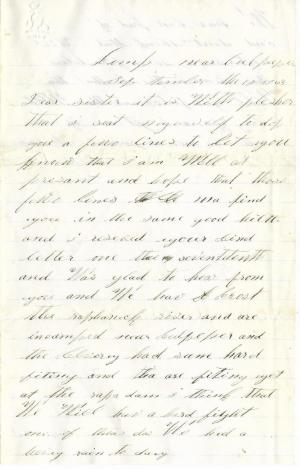 Camp near Culpeper
Sep tember the 18 1863
Dear sister it is With plesher
that i seat myself to drop
you a fiew lines to let you
know that i am Well at
presant and hope that those
fiew lines ma find
you in the same good helth
and i reseved your kind
letter one the seventeenth
and Was glad to hear from
you and We hav crost
the raphanoc river and are
incamped near culpeper and
the Calvery had some hard
fiting and tha are fiting yet
at the rapadam i think that
We Will hav a hard fight
one of these das We had a
hevy rain to day